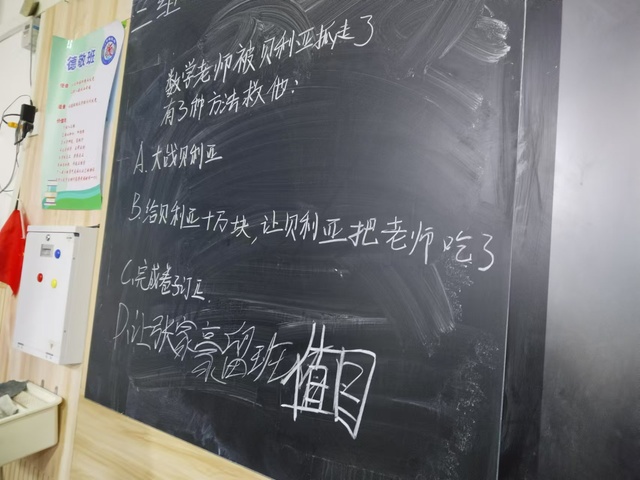 三组
德敬班
数学老师被贝利亚抓走了
有3种方法救他:
A.大战贝利亚
B.给贝利亚十万块,让贝利亚把老师吃了
C.完成卷子订正
D.让张家豪留班值日